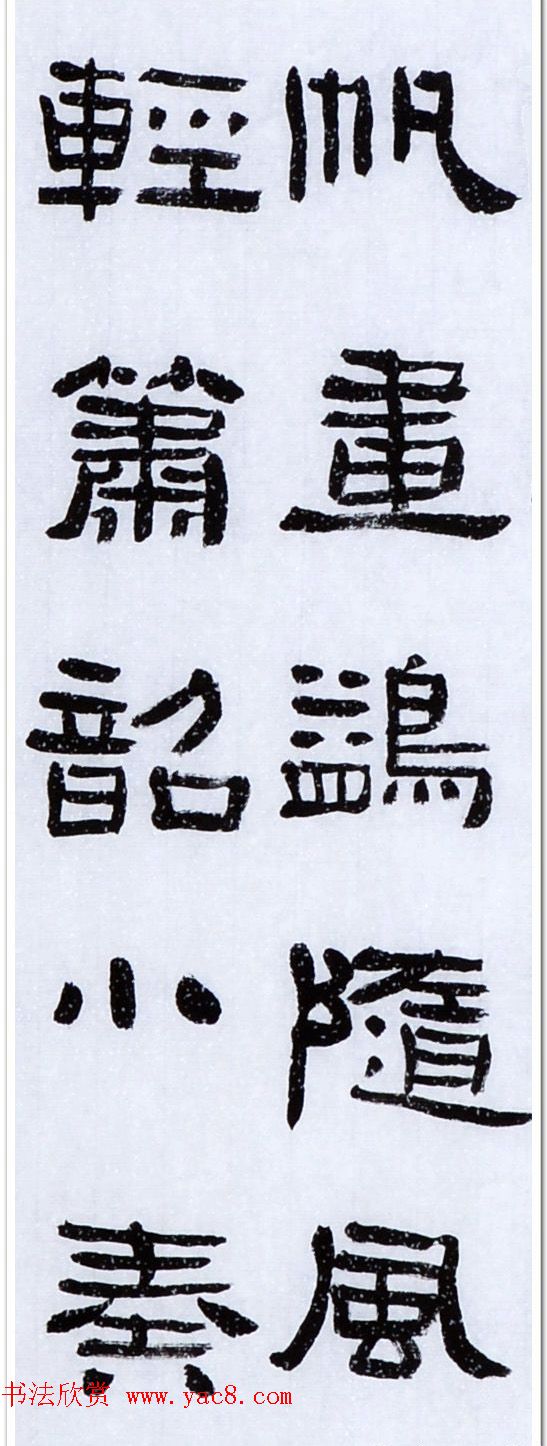 帆畫鷁隨風
輕簫韶小奏
书法欣赏 www.yac8.com